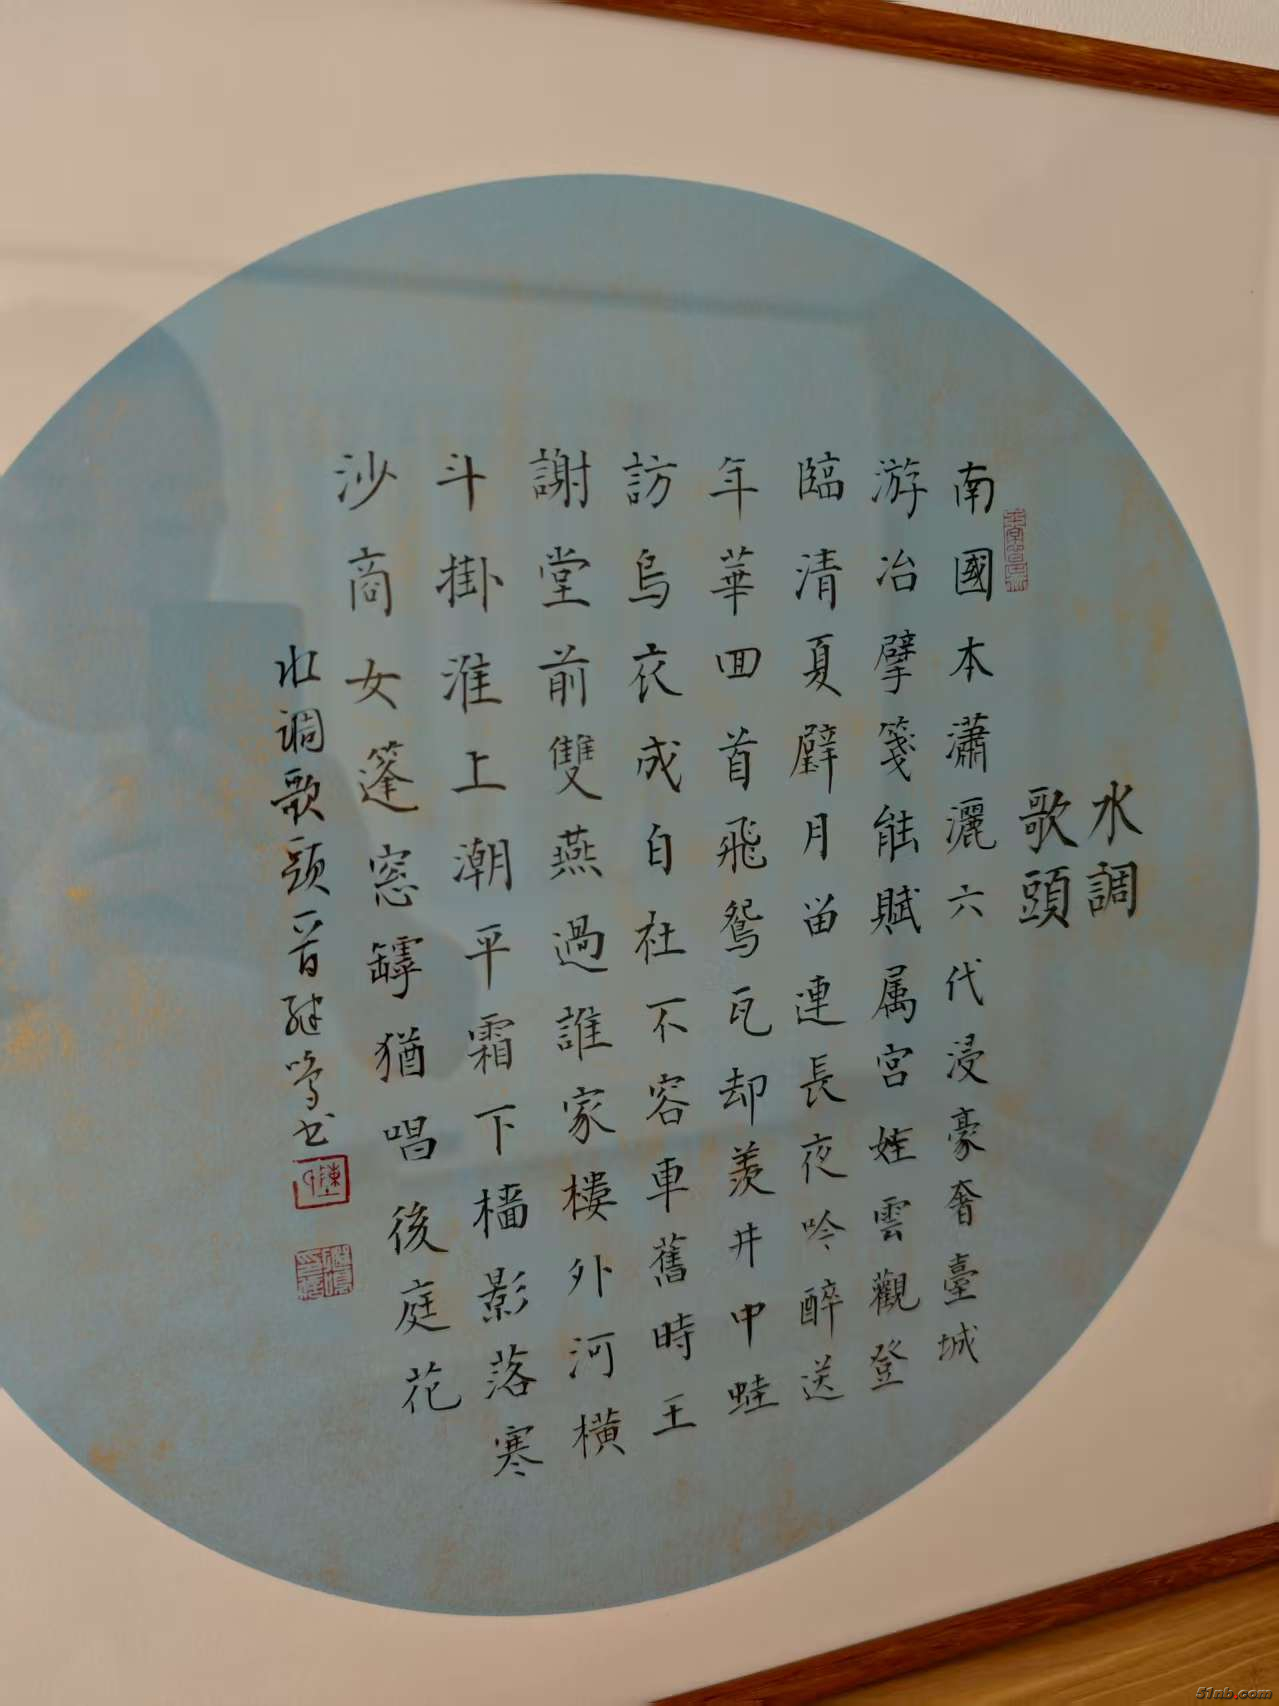 水調
歌頭
南國本瀟灑六代浸豪奢臺城
游冶擘箋能賦属宮娃雲觀登
臨清夏璧月留連長夜吟醉送
年華回首飛鴛瓦却羨井中蛙
訪烏衣成白社不容車舊時王
謝堂前雙燕過誰家樓外河橫
斗掛淮上潮平霜下檣影落寒
沙商女篷窓罅猶唱後庭花
水調歌頭一首 继鳴书
51nb.com